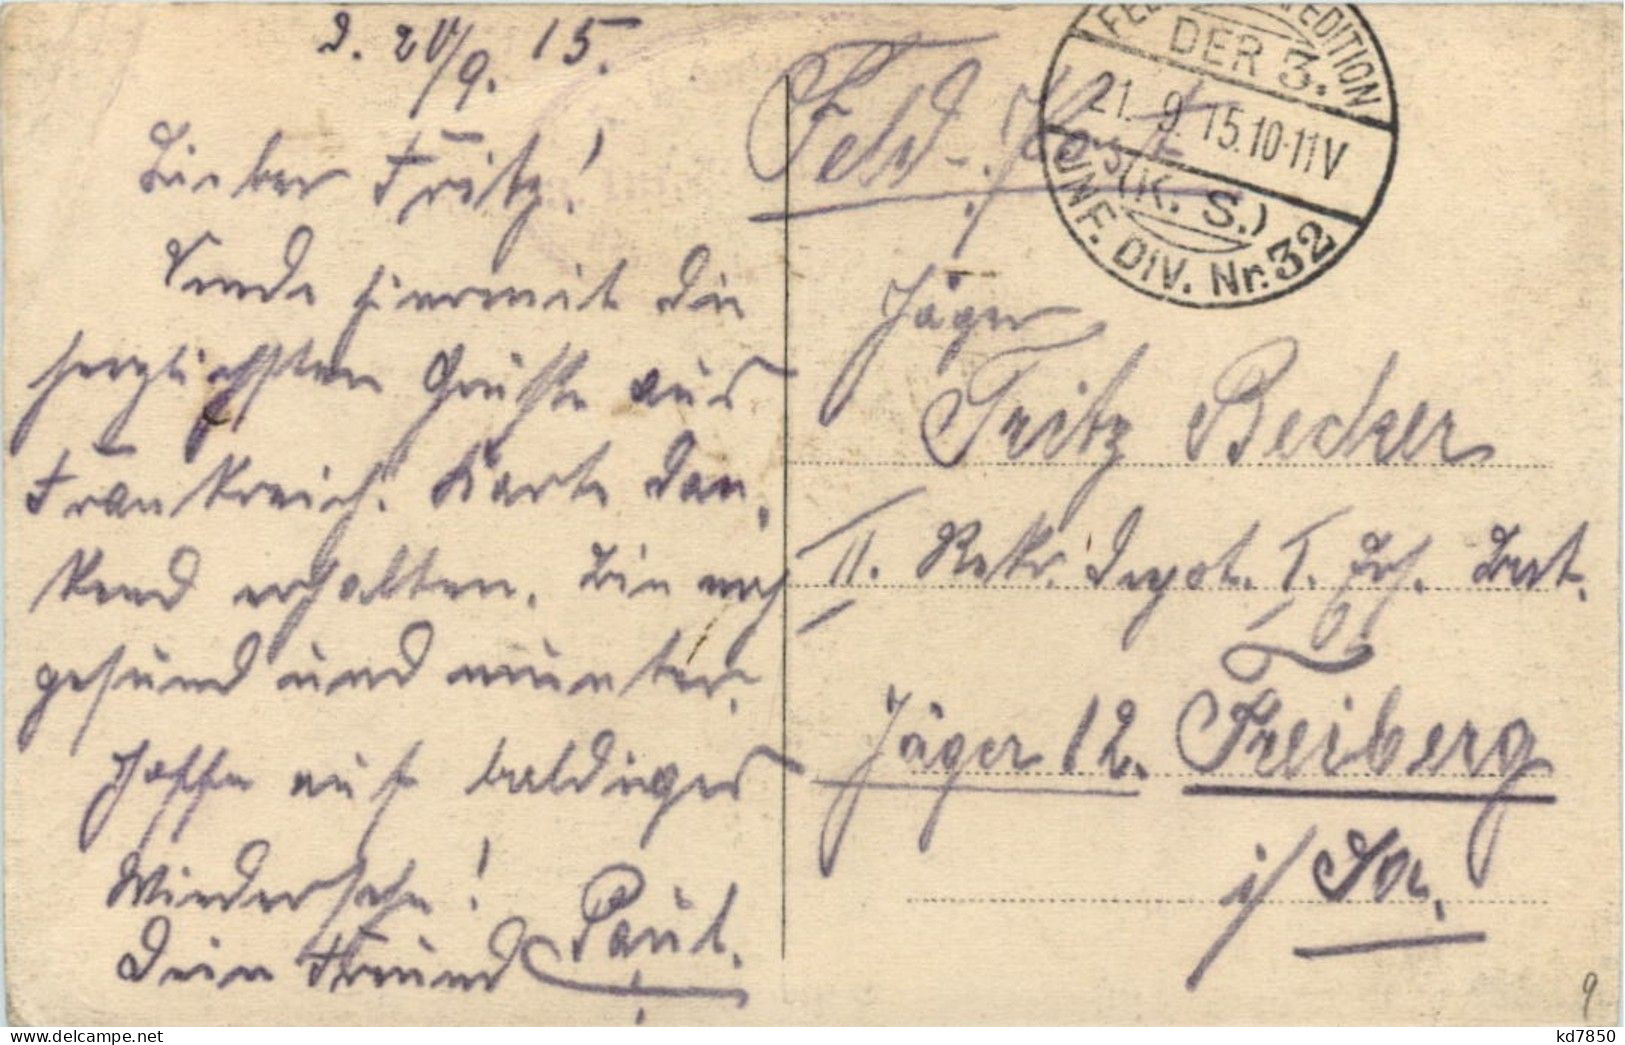 d. 20/9. 15.
Lieber Fritz!
Sende hiermit die
herzlichsten Grüße aus
Frankreich. Karte dan-
kend erhalten. Bin noch
gesund und munter.
Hoffe auf baldiges
Wiedersehn!
Dein Freund Paul.
Feld-Post
DER 3.
21. 9. 15. 10-11V
(K. S.)
INF. DIV. Nr. 32
Jäger
Fritz Becker
II. Rekr. Depot. I. Ers. Bat.
Jäger 12. Freiberg
i/ Sa.
9
kd7850